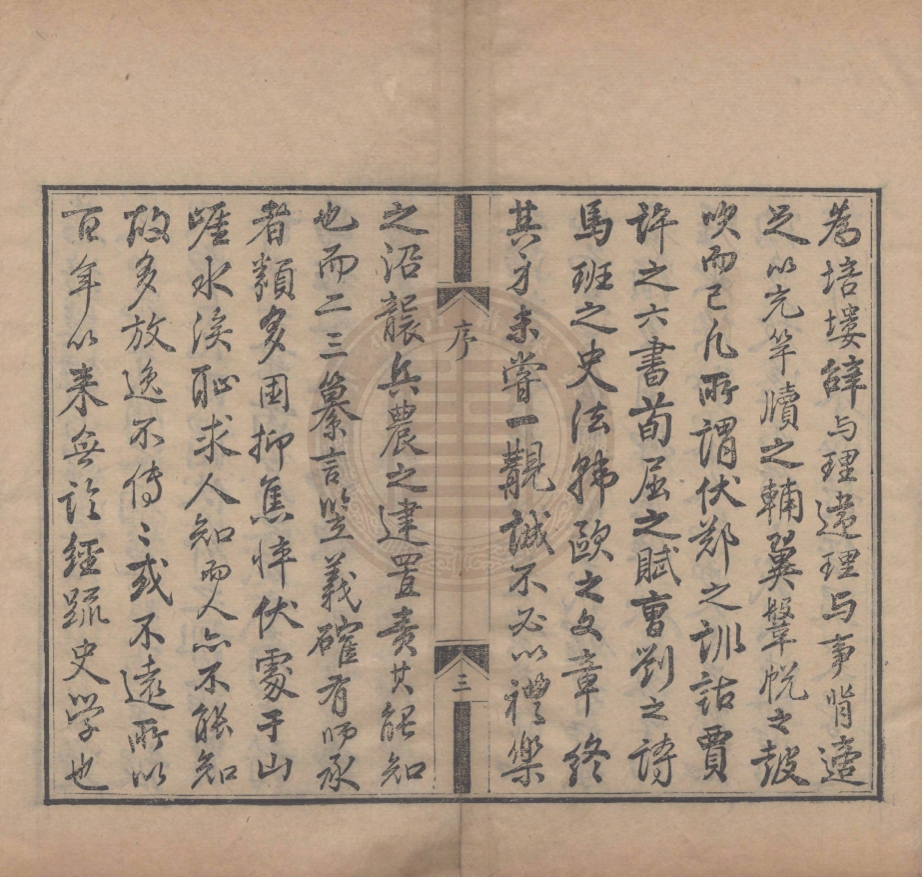 為培塿辭与理違理与事背適
足以充竿牘之輔翼鞶帨之鼓
吹而已凡所謂伏鄭之訓詁賈
許之六書荀屈之賦曹劉之詩
馬班之史法韓歐之文章終
其身未嘗一覯誠不必以禮樂
序
三
之沿襲兵農之建置責其能知
也而二三纂言筮義確有師承
者類多困抑焦悴伏處于山
崖水涘恥求人知而人亦不能知
故多放逸不傳〻或不遠所以
百年以來無論經疏史学也